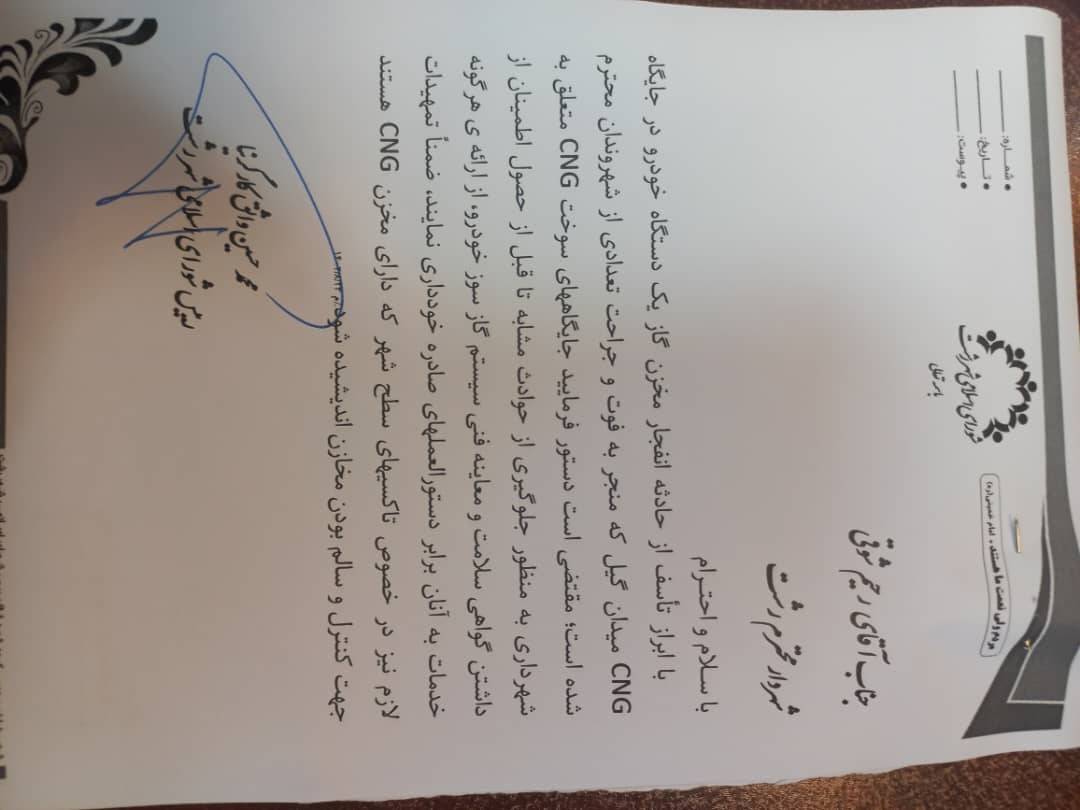 شورای اسلامی شهر رشت
باسمه تعالی
مردم ولی نعمت ما هستند. امام خمینی(ره)
• شماره:
• تاریخ:
• پیوست:
جناب آقای رحیم شوقی
شهردار محترم رشت
با سلام و احترام
با ابراز تأسف از حادثه انفجار مخزن گاز یک دستگاه خودرو در جایگاه
CNG میدان گیل که منجر به فوت و جراحت تعدادی از شهروندان محترم
شده است؛ مقتضی است دستور فرمایید جایگاههای سوخت CNG متعلق به
شهرداری به منظور جلوگیری از حوادث مشابه تا قبل از حصول اطمینان از
داشتن گواهی سلامت و معاینه فنی سیستم گاز سوز خودرو، از ارائه ی هرگونه
خدمات به آنان برابر دستورالعملهای صادره خودداری نمایند، ضمناً تمهیدات
لازم نیز در خصوص تاکسیهای سطح شهر که دارای مخزن CNG هستند
جهت کنترل و سالم بودن مخازن اندیشیده شود.
محمد حسین واثق کارگرنیا
رییس شورای اسلامی شهر رشت